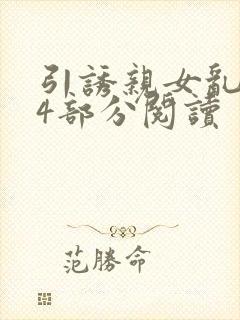 引誘親女亂
4部分閱讀
范勝命